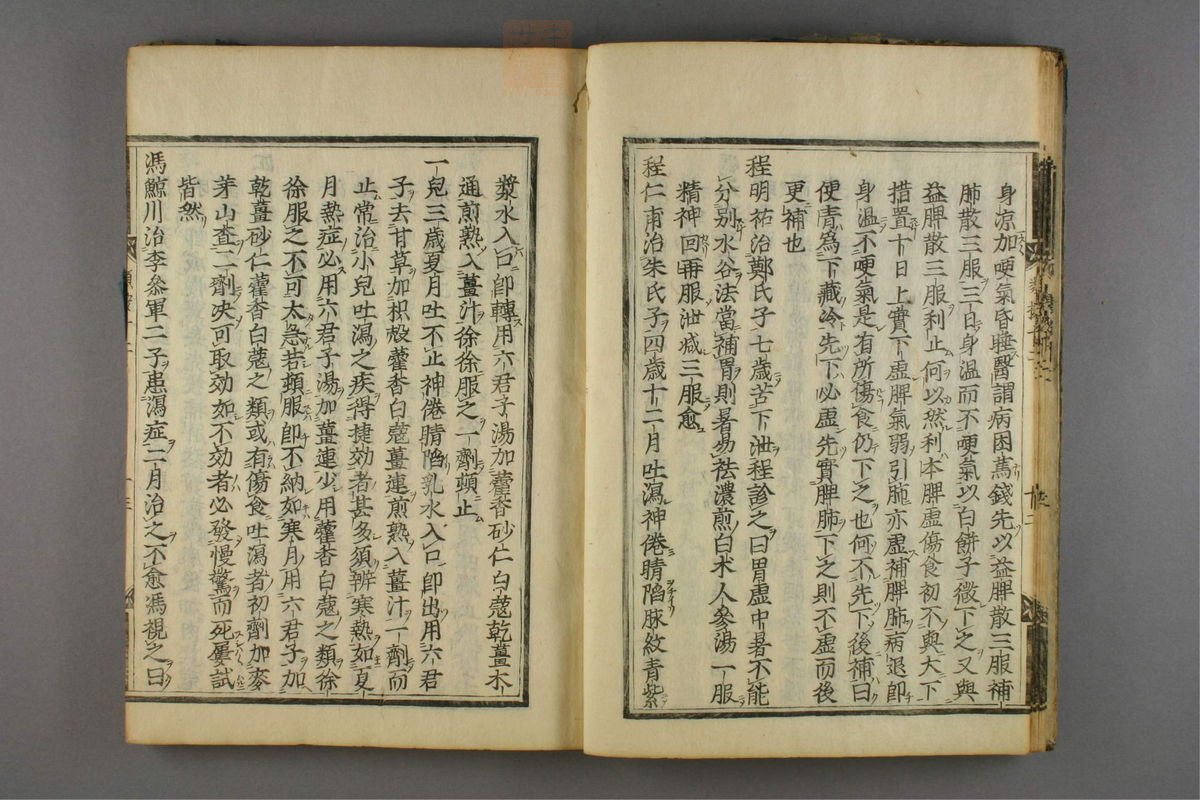 身凉加哽氣昏睡醫謂病困爲錢先以益脾散三服補
肺散三服三日身温而不哽氣以白餅子微下之又與
益脾散三服利止何以然利本脾虚傷食初不與大下
措置十日上實下虚脾氣弱引肺亦虚補脾肺病退即
身温不哽氣是有所傷食仍下之也何不先下後補曰
便青爲下藏冷先下必虚先實脾肺下之則不虚而後
更補也
程明祐治鄭氏子七歳苦下泄程診之曰胃虚中暑不能
分别水谷法當補胃則暑易祛濃煎白术人參湯一服
精神回再服泄减三服愈
程仁甫治朱氏子四歳十二月吐瀉神倦睛陷脉紋青紫
漿水入口即轉用六君子湯加藿香砂仁白蔻乾薑木
通煎熟入薑汁徐徐服之一劑頓止
一兒三歳夏月吐不止神倦睛陷乳水入口即出用六君
子去甘草加枳殻藿香白蔻薑連煎熟入薑汁一劑而
止常治小兒吐瀉之疾得捷効者甚多須辨寒熱如夏
月熱症必用六君子湯加薑連少用藿香白蔻之類徐
徐服之不可太急若頓服即不納如寒月用六君子加
乾薑砂仁藿香白蔻之類或有傷食吐瀉者初劑加麥
芽山查二劑决可取効如不効者必發慢驚而死屢試
皆然
馮鯨川治李叅軍二子患瀉症二月治之不愈馮視之曰